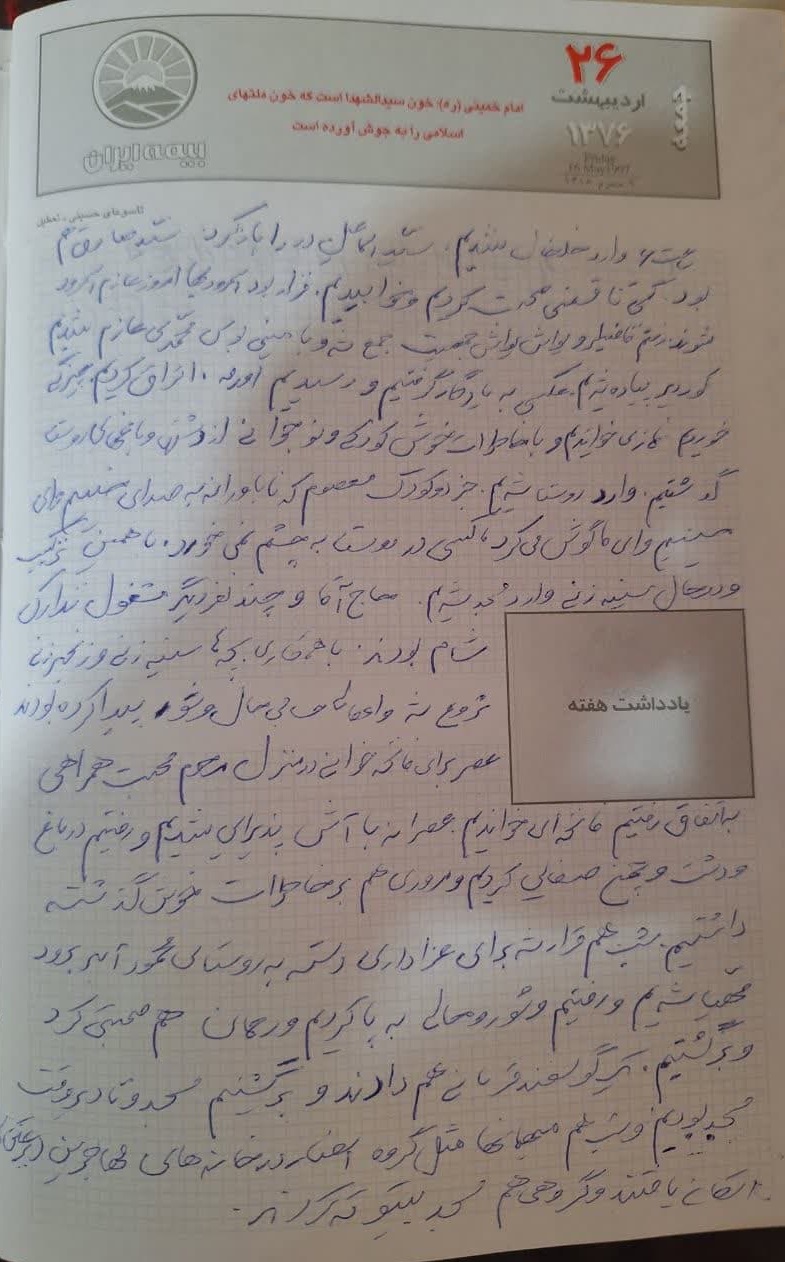 ۲۶
اردیبهشت
۱۳۷۶
جمعه
Friday
16 May 1997
۹ محرم ۱۴۱۸
امام خمینی (ره): خون سیدالشهدا است که خون ملتهای
اسلامی را به جوش آورده است
بیمه ایران
تاسوعای حسینی - تعطیل
وارد خلخال شدیم. سید اسماعیل در را باز کرد. سید صادق هم
بود. کمی تا قسمتی صحبت کردیم و خوابیدیم. قرار بود امروز عازم
شوند. رفتم و یواش یواش جمعیت جمع شد و با مینی بوس محمدی عازم شدیم
پیاده شدیم. عکسی به یادگار گرفتیم و رسیدیم اتراق کردیم. چیزکی
خوردیم نمازی خواندیم و با خاطرات خوش کودکی و نوجوانی از دشتها و باغهای روستا
گذشتیم. وارد روستا شدیم. جز دو کودک معصوم که ناباورانه به صدای
حسینم وای ما گوش می کرد، کسی در روستا به چشم نمی خورد. با همین ترکیب
و در حال سینه زنی وارد مسجد شدیم. حاج آقا و چند نفر دیگر مشغول تدارک
شام بودند. با همکاری بچه ها سینه زنی و زنجیرزنی
شروع شد و حال و شور پیدا کرده بودند
عصر برای فاتحه خوانی در منزل مرحوم محبت همراهی
به اتفاق رفتیم فاتحه ای خواندیم. عصرانه با آش پذیرایی شدیم و رفتیم در باغ
و دشت و چمن صفایی کردیم و مروری هم بر خاطرات خوش گذشته
داشتیم. شب هم قرار شد برای عزاداری دسته به روستای محمودآباد برود
مهیا شدیم و رفتیم و شور و حالی به پا کردیم و رحمان هم صحبتی کرد
و برگشتیم. یک گوسفند قربانی هم دادند و برگشتیم مسجد و تا دیروقت
مسجد بودیم و شب هم میهمانها مثل گروه انصار در خانه های مهاجرین
اسکان یافتند و گروهی هم مسجد بیتوته کردند.
یادداشت هفته